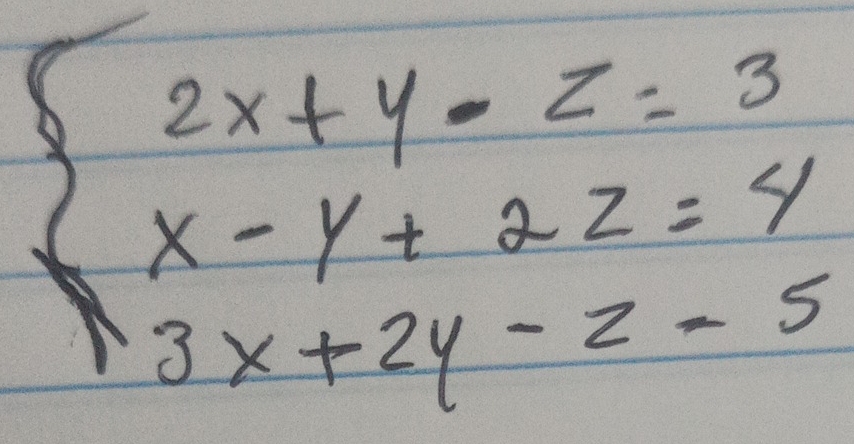 2x + y - z = 3
x - y + 2z = 4
3x + 2y - z - 5